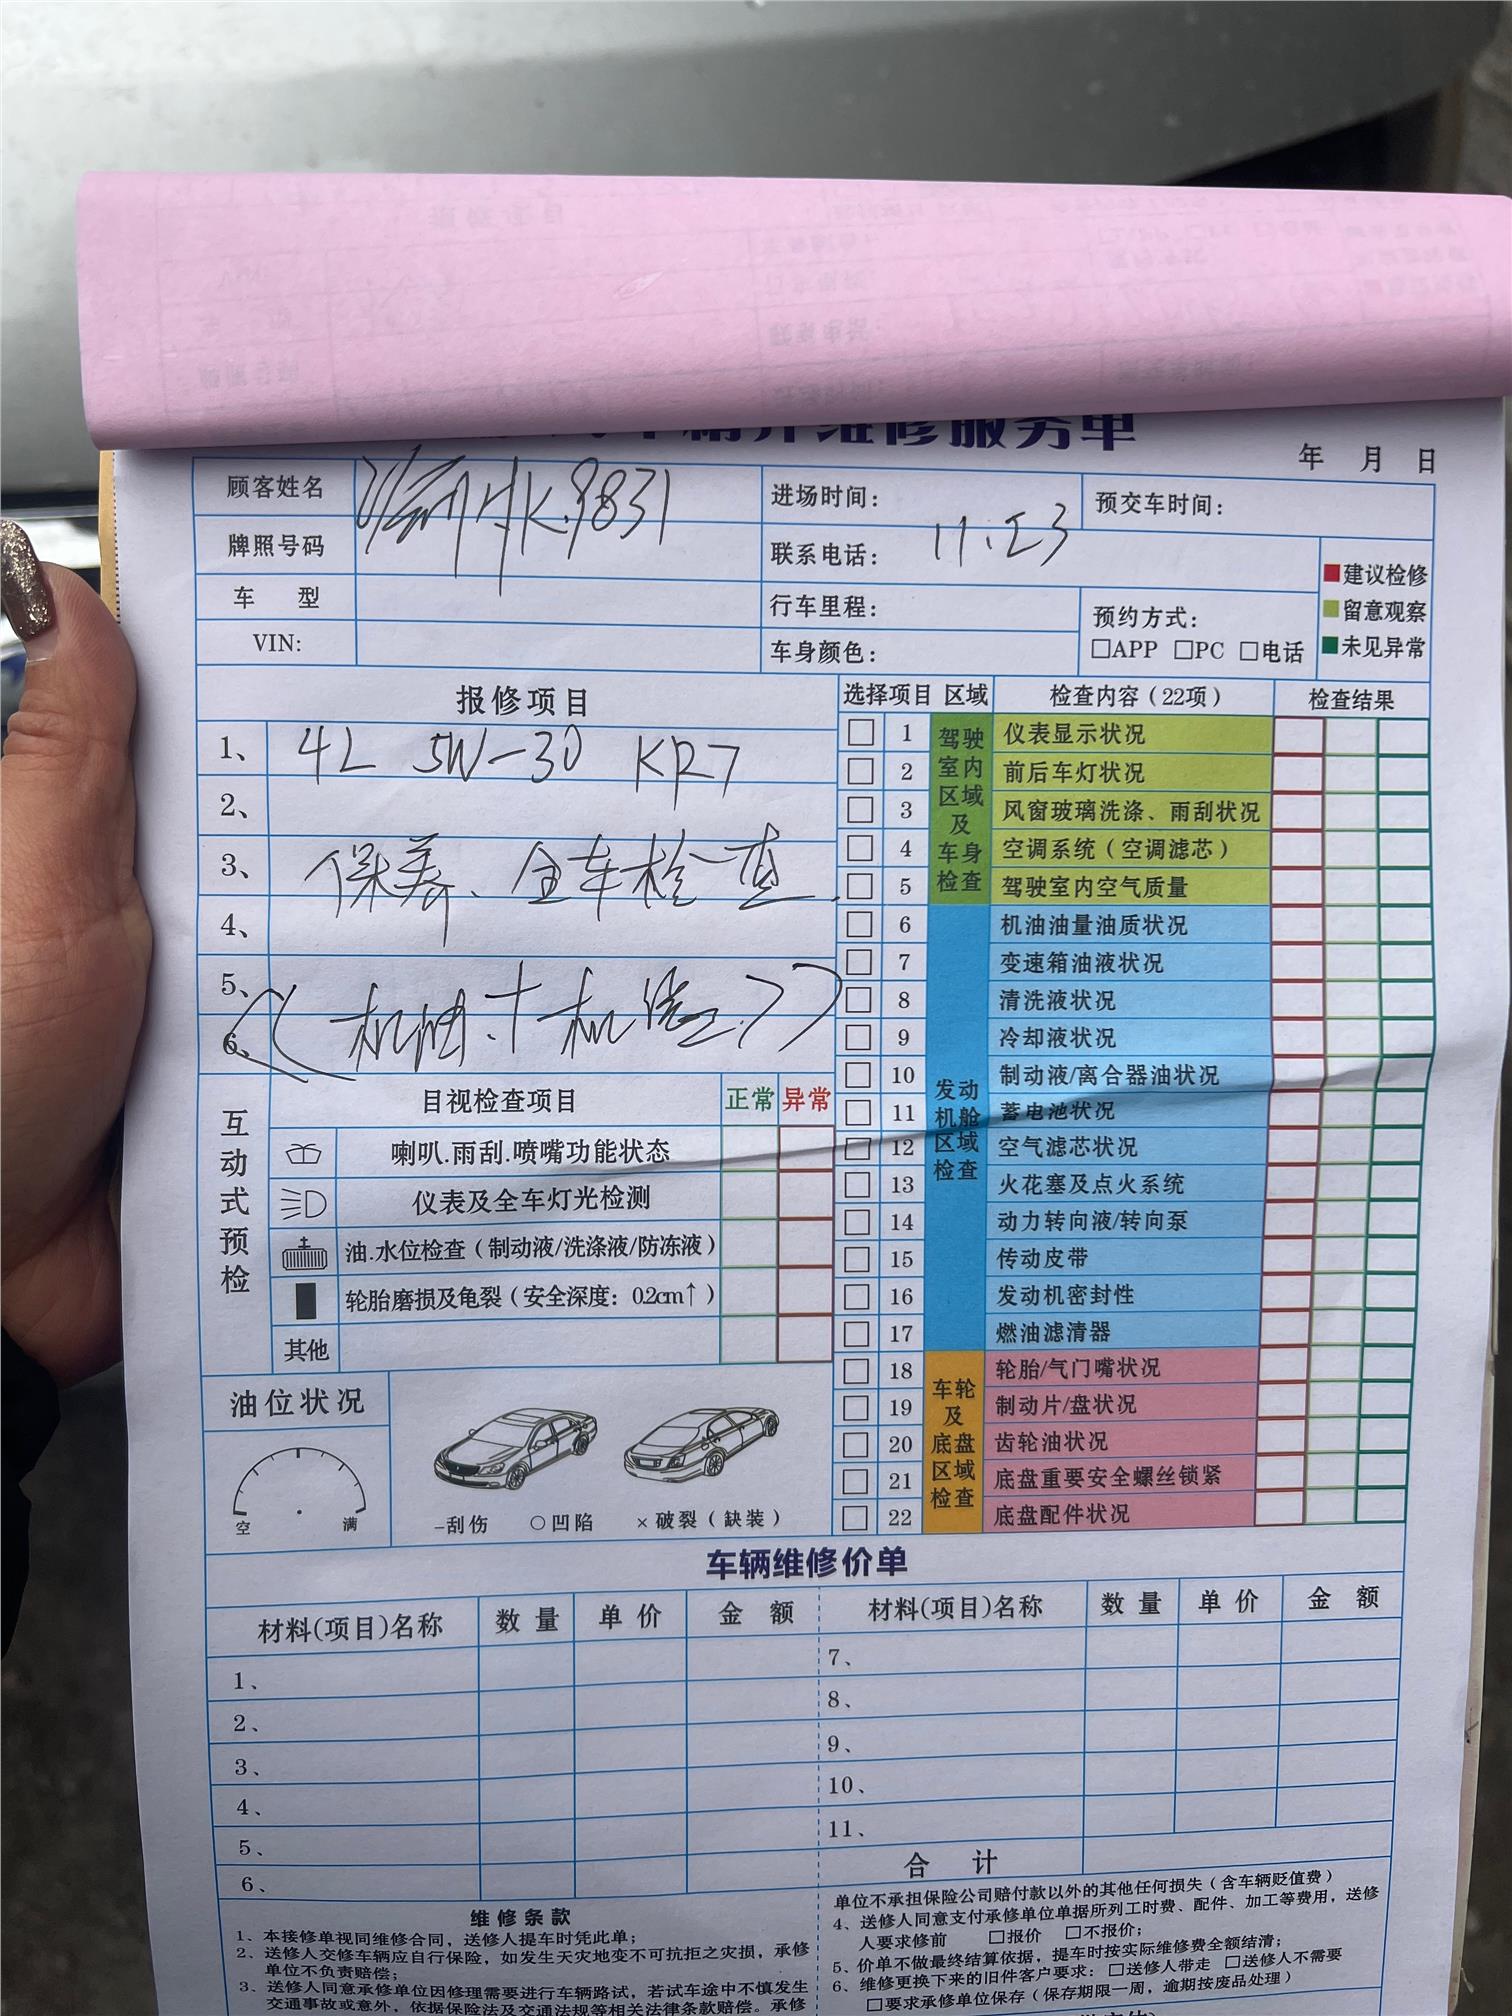 维修服务单
年 月 日
顾客姓名
K.9831
进场时间:
预交车时间:
牌照号码
联系电话:
建议检修
车 型
行车里程:
预约方式:
留意观察
VIN:
车身颜色:
□APP □PC □电话
未见异常
报修项目
1、 4L 5W-30 KR7
2、
3、 保养、全车检查
4、
5、
6、 (机油+机滤)
选择项目 区域 检查内容(22项) 检查结果
驾驶室内区域及车身检查
1 仪表显示状况
2 前后车灯状况
3 风窗玻璃洗涤、雨刮状况
4 空调系统(空调滤芯)
5 驾驶室内空气质量
发动机舱区域检查
6 机油油量油质状况
7 变速箱油液状况
8 清洗液状况
9 冷却液状况
10 制动液/离合器油状况
11 蓄电池状况
12 空气滤芯状况
13 火花塞及点火系统
14 动力转向液/转向泵
15 传动皮带
16 发动机密封性
17 燃油滤清器
车轮及底盘区域检查
18 轮胎/气门嘴状况
19 制动片/盘状况
20 齿轮油状况
21 底盘重要安全螺丝锁紧
22 底盘配件状况
互动式预检
目视检查项目 正常 异常
喇叭.雨刮.喷嘴功能状态
仪表及全车灯光检测
油.水位检查(制动液/洗涤液/防冻液)
轮胎磨损及龟裂(安全深度:0.2cm↑)
其他
油位状况
空 满
-刮伤 ○凹陷 ×破裂(缺装)
车辆维修价单
材料(项目)名称 数量 单价 金额 材料(项目)名称 数量 单价 金额
1、 7、
2、 8、
3、 9、
4、 10、
5、 11、
6、 合计
维修条款
1、本接修单视同维修合同,送修人提车时凭此单;
2、送修人交修车辆应自行保险,如发生天灾地变不可抗拒之灾损,承修
单位不负责赔偿;
3、送修人同意承修单位因修理需要进行车辆路试,若试车途中不慎发生
交通事故或意外,依据保险法及交通法规等相关法律条款赔偿。承修
单位不承担保险公司赔付款以外的其他任何损失(含车辆贬值费)
4、送修人同意支付承修单位单据所列工时费、配件、加工等费用,送修
人要求修前 □报价 □不报价;
5、价单不做最终结算依据,提车时按实际维修费全额结清;
6、维修更换下来的旧件客户要求:□送修人带走 □送修人不需要
□要求承修单位保存(保存期限一周,逾期按废品处理)